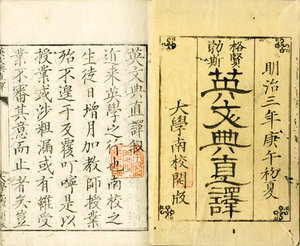 明治三年庚午初夏
格賢
勃斯
英文典直譯
大學南校開版
英文典直譯叙
近来英學之行也南校之
生徒日增月加教師授業
殆不遑于反覆叮嚀是以
授業或涉粗漏或有雖受
業不審其意而止者矣豈